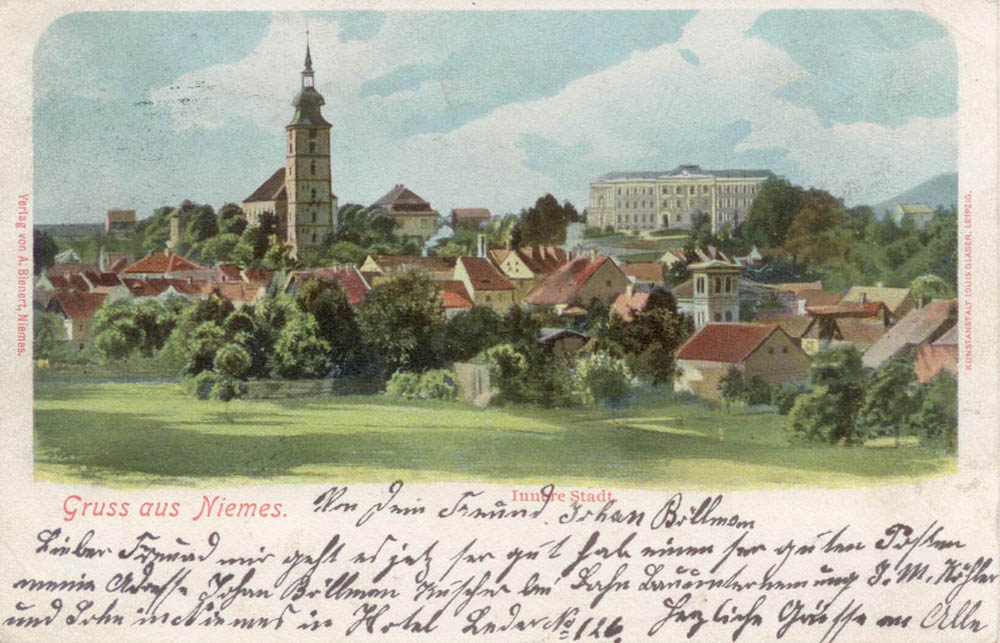 Verlag von A. Bienert, Niemes.
KUNSTANSTALT LOUIS GLASER, LEIPZIG.
Gruss aus Niemes.
Innere Stadt
Von Dein Freund Johan Böllman
Lieber Freund mir geht es jetz ser gut hab einen ser guten Posten
meine Adresse Johan Böllman Kuscher bei Bahn Bauunternemung J. M. Köhler
und Sohn in Niemes in Hotel Leder No 126 Herzliche Grüsse an Alle